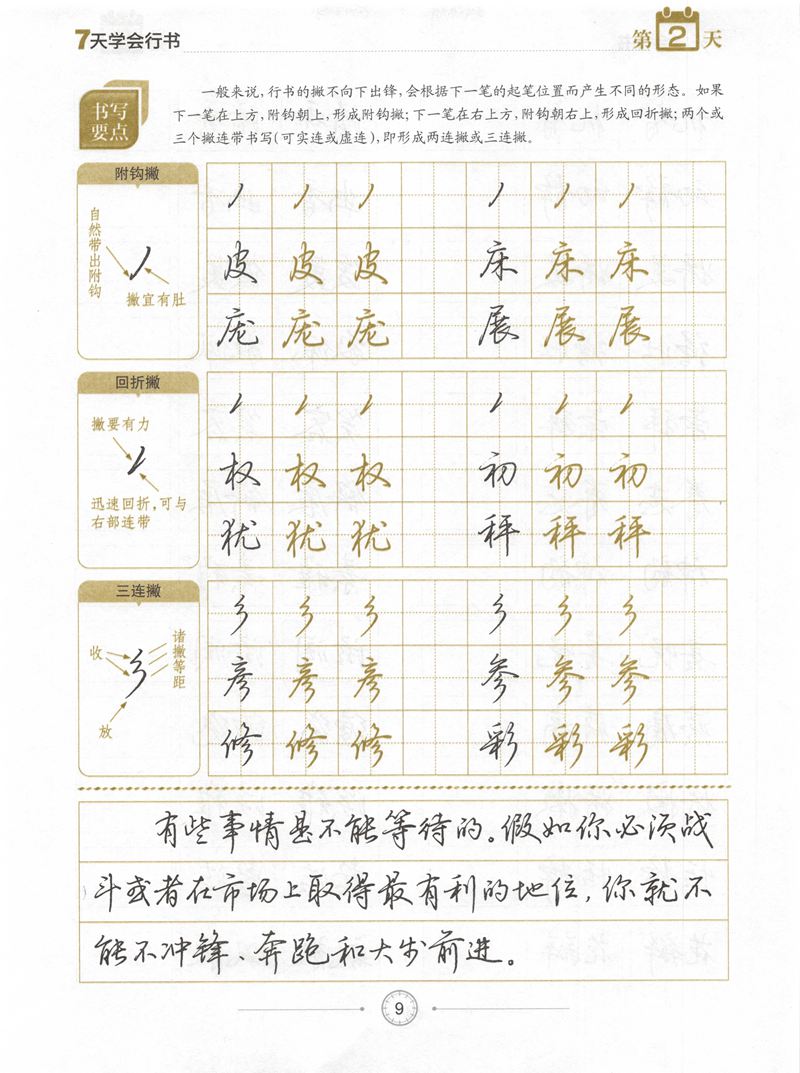 7天学会行书
第2天
书写
要点
一般来说，行书的撇不向下出锋，会根据下一笔的起笔位置而产生不同的形态。如果
下一笔在上方，附钩朝上，形成附钩撇；下一笔在右上方，附钩朝右上，形成回折撇；两个或
三个撇连带书写（可实连或虚连），即形成两连撇或三连撇。
附钩撇
自然带出附钩
撇宜有肚
丿 丿 丿 丿 丿 丿
皮 皮 皮 床 床 床
庞 庞 庞 展 展 展
回折撇
撇要有力
迅速回折，可与
右部连带
权 权 权 初 初 初
犹 犹 犹 秤 秤 秤
三连撇
收
诸撇等距
放
彡 彡 彡 彡 彡 彡
彦 彦 彦 参 参 参
修 修 修 彩 彩 彩
有些事情是不能等待的。假如你必须战
斗或者在市场上取得最有利的地位，你就不
能不冲锋、奔跑和大步前进。
9